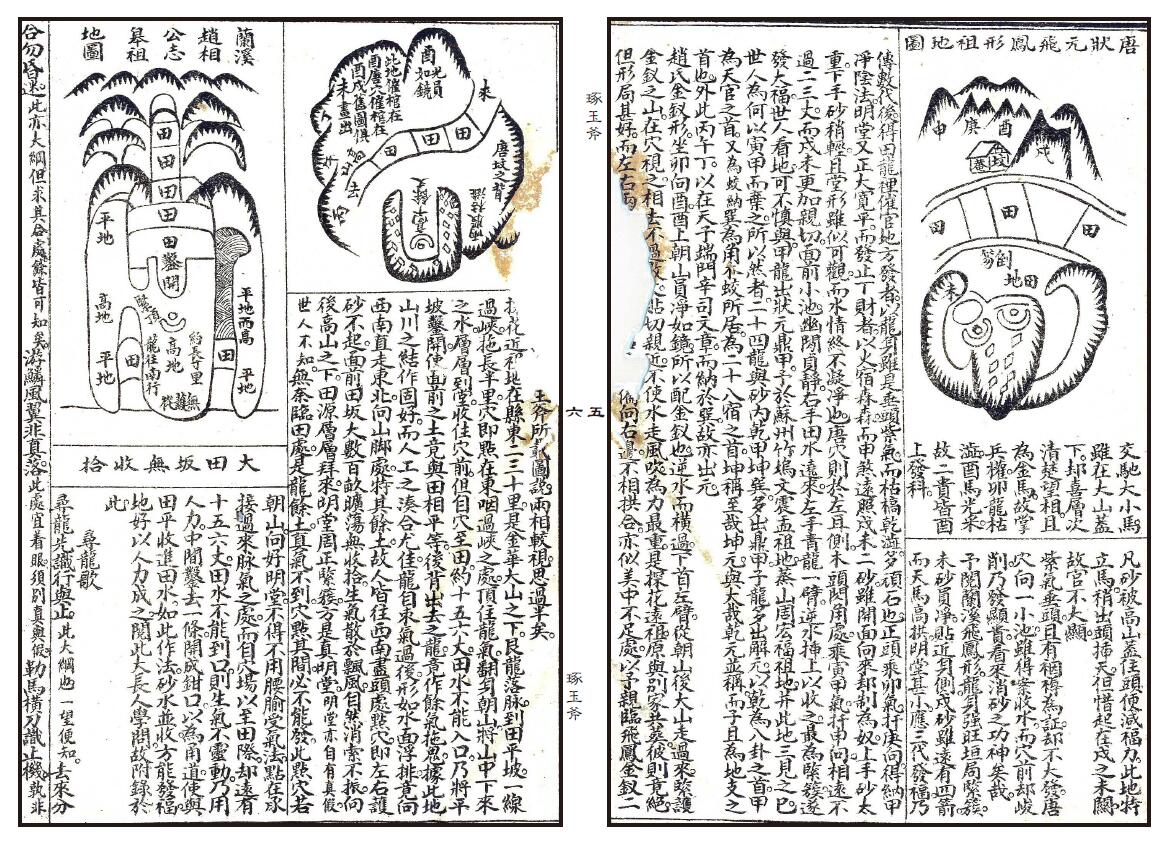 唐狀元飛鳳形祖地圖
申
庚
酉
戌
坟
菴
田
田
田
倒笏
田地
未
交馳大小馬
雖在大山蓋
下却喜層次
清楚望相且
為金馬故掌
兵權卯龍枯
澁酉馬光采
故二貴皆酉
上發科
凡砂被高山蓋住頭便減福力此地特
立馬稍出頭插天但惜起在戌之末關
故官不大顯
紫氣垂頭且有裀褥為証却不大發唐
穴向一小池雖得緊收水而穴前却峻
削乃發顯貴看來消砂之功神矣哉
予閱蘭溪飛鳳形龍身强旺垣局緊簇
未砂員淨貼近身側戌砂雖遠有四箭
而天馬高拱明堂甚小應三代發福乃
傳數代後得田龍裡催官地方發者以龍身雖是垂頭紫氣而枯槁乾澁多頑石也正頭來卯氣扦庚向得納甲
淨陰法明堂又正大寬平而發正丁財者以火宿森森而甲煞遠照戌未一砂雖開面向來却刮為奴上手砂太
重下手砂稍輕且堂形雖似可觀而水情終不凝淨也唐穴則放左耳側木頭開角處乘寅甲氣扦申向相遠不
過二三丈而戌未更加親切面前小池幽閒員靜右手田水遠來左手青龍一臂逆水揷上以收之最為緊簇遂
發大福世人看地可不慎與甲龍出狀元鼎甲予於蘇州竹塢文震孟祖地燕山周宏福祖地并此地三見之巳
世人為何以寅甲而棄之所以然者二十四龍與砂內乾甲坤巽多出鼎甲子龍多出解元以乾為八卦之首甲
為天官之首又為蚊納巽為角木蛟所居為二十八宿之首坤稱至哉坤元與大哉乾元並稱而子且為地支之
首也外此丙午丁以在天干端門辛司文章而納於巽故亦出元
趙氏金釵形坐卯向酉酉上朝山員淨如鏡所以配金釵也逆水而橫過下首左臂從朝山後大山走過來緊護
金釵之山在穴視之相去不過
貼切親近不使水走風吹為力最重是探花遠祖原與別家共塟彼則竟絕
但形局甚好而左右兩
向右邊不相拱合亦似美中不足處以予親臨飛鳳金釵二
琢玉斧
五六
琢玉斧
來
酉
光員如鏡
此地催棺在
酉唐穴催棺在
酉戌舊圖俱
未畫出
田
田
田
去
唐坟之背
探花近祖地在縣東二三十里是金華大山之下艮龍落脉到田平坡一線
過峽拖長半里穴即點在東咽過峽之處頂住龍氣翻身朝山將山中下來
之水層層到堂收住穴前但自穴至田約十五六丈田水不能入口乃將平
坡鑿開使面前之土竟與田相平等後背出去之龍竟作餘氣拖曳據此地
山川之結作固好而人工之湊合尤佳龍自來氣過後形如水面浮排竟向
西南直走東北向山脚處特其餘土故人皆往西南盡頭處點穴即左右護
砂不起面前田坂大數百畝曠蕩無收拾生氣散於飄風自然消索不振向
後高山之下田源層層拜來明堂周正緊簇方是真明堂明堂亦自有真假
世人不知無奈臨田處是龍餘土直氣不到穴點其間必不能發此點穴若
蘭溪
趙相
公志
皋祖
地圖
田
田
田
田
田
鑿開
平地
高地
平地
緊頂
龍往南行
高地
約長半里
平地而高
平地
田
田
無護從
大田坂無收拾
朝山向好明堂不得不用腰腧受氣法點在承
接過來脉氣之處而自穴場以至田際却遠有
十五六丈田水不能到口則生氣不靈動乃用
人力中間鑿去一條開成鉗口以為甬道使與
田平收進田水如此作法砂水並收方能發福
地好以人力成之閱此大長人學問故附錄於
此
尋龍歌
尋龍先識行與止此大綱也一望便知去來分
合勿昏迷此亦大綱但求其合處餘皆可知矣游鱗風翼非真落此處宜着眼須別真與假勒馬橫刀識止機孰非